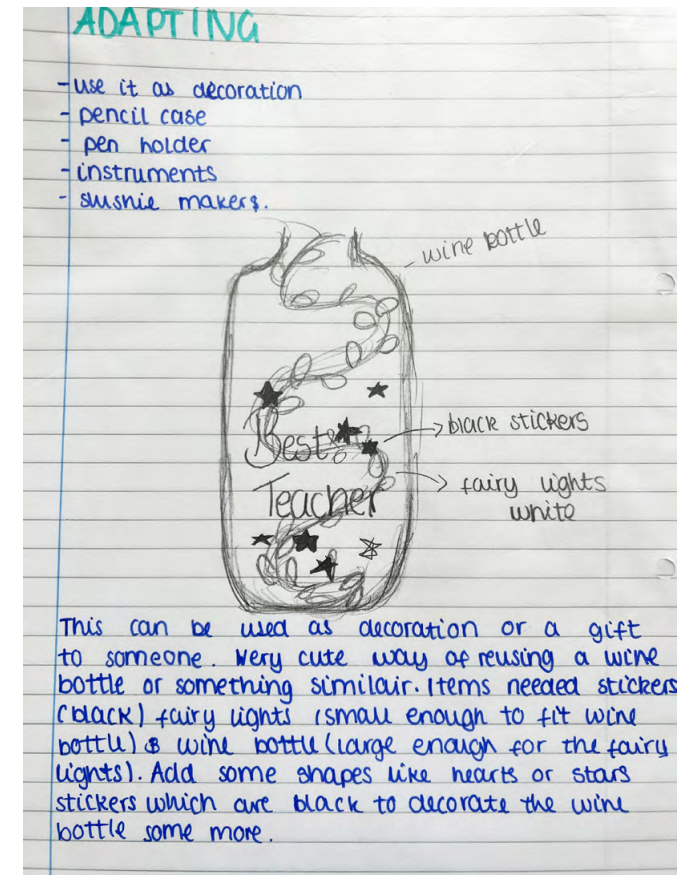 ADAPTING
- use it as decoration
- pencil case
- pen holder
- instruments
- slushie makers.
- wine bottle
Best
Teacher
black stickers
fairy lights
white
This can be used as decoration or a gift
to someone. Very cute way of reusing a wine
bottle or something similair. Items needed stickers
(black) fairy lights (small enough to fit wine
bottle) & wine bottle (large enough for the fairy
lights). Add some shapes like hearts or stars
stickers which are black to decorate the wine
bottle some more.